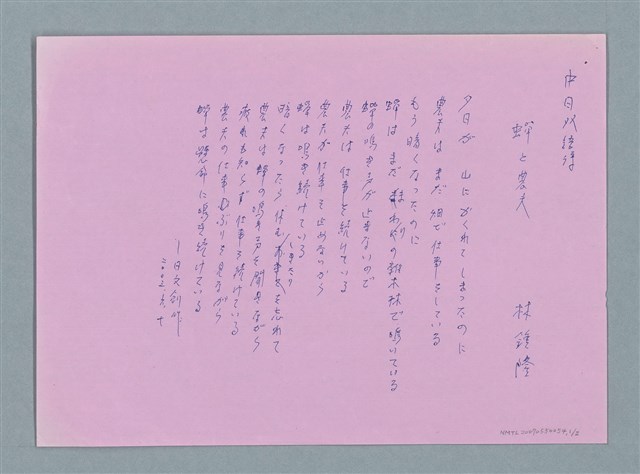 中日双語詩
蟬と農夫
林鍾隆
夕日が 山にかくれてしまったのに
農夫は まだ 畑で仕事をしている
もう 暗くなったのに
蟬は まだ まわりの雑木林で鳴いている
蟬の鳴き声が止まないので
農夫は 仕事を続けている
農夫が 仕事を止めないから
蟬は 鳴き続けている
暗くなったら 休む しきたりを忘れて
農夫は 蟬の鳴き声を聞きながら
疲れも知らず 仕事を続けている
農夫の仕事ぶりを見ながら
蟬は 懸命に鳴き続けている
—日文創作
NMTL20090530054,1/2